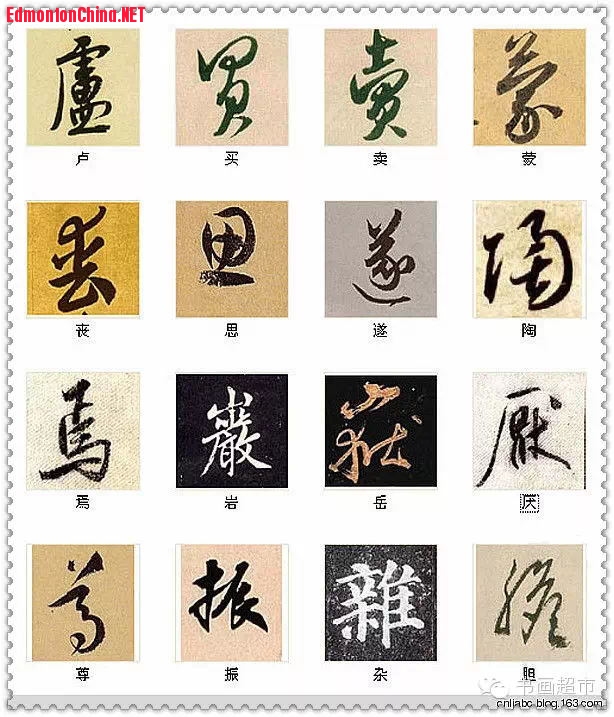 EdmontonChina.NET
盧 買 賣 蒙
卢 买 卖 蒙
喪 思 遂 陶
丧 思 遂 陶
焉 巖 嶽 厭
焉 岩 岳 厌
尊 振 雜 膽
尊 振 杂 胆
书画超市
cnljabc.blog.163.com